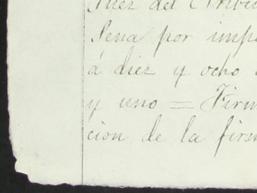 Juez del Tribu
Pena por imp
á diez y ocho
y uno = Firm
cion de la firm